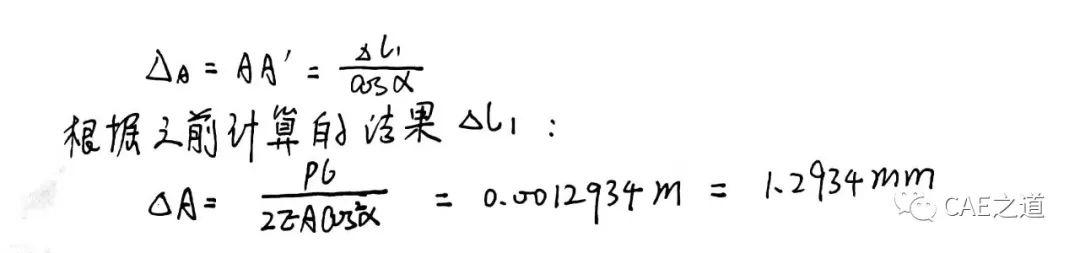 Δ_A = AA' = ΔL₁/cosα
根据之前计算的结果 ΔL₁ :
ΔA = Pl/2EAcos²α = 0.0012934 m = 1.2934 mm
CAE之道